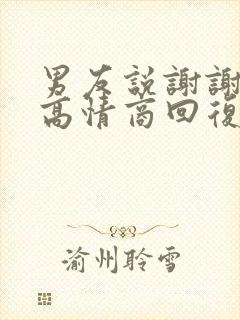 男友説謝謝
高情商回復
渝州聆雪